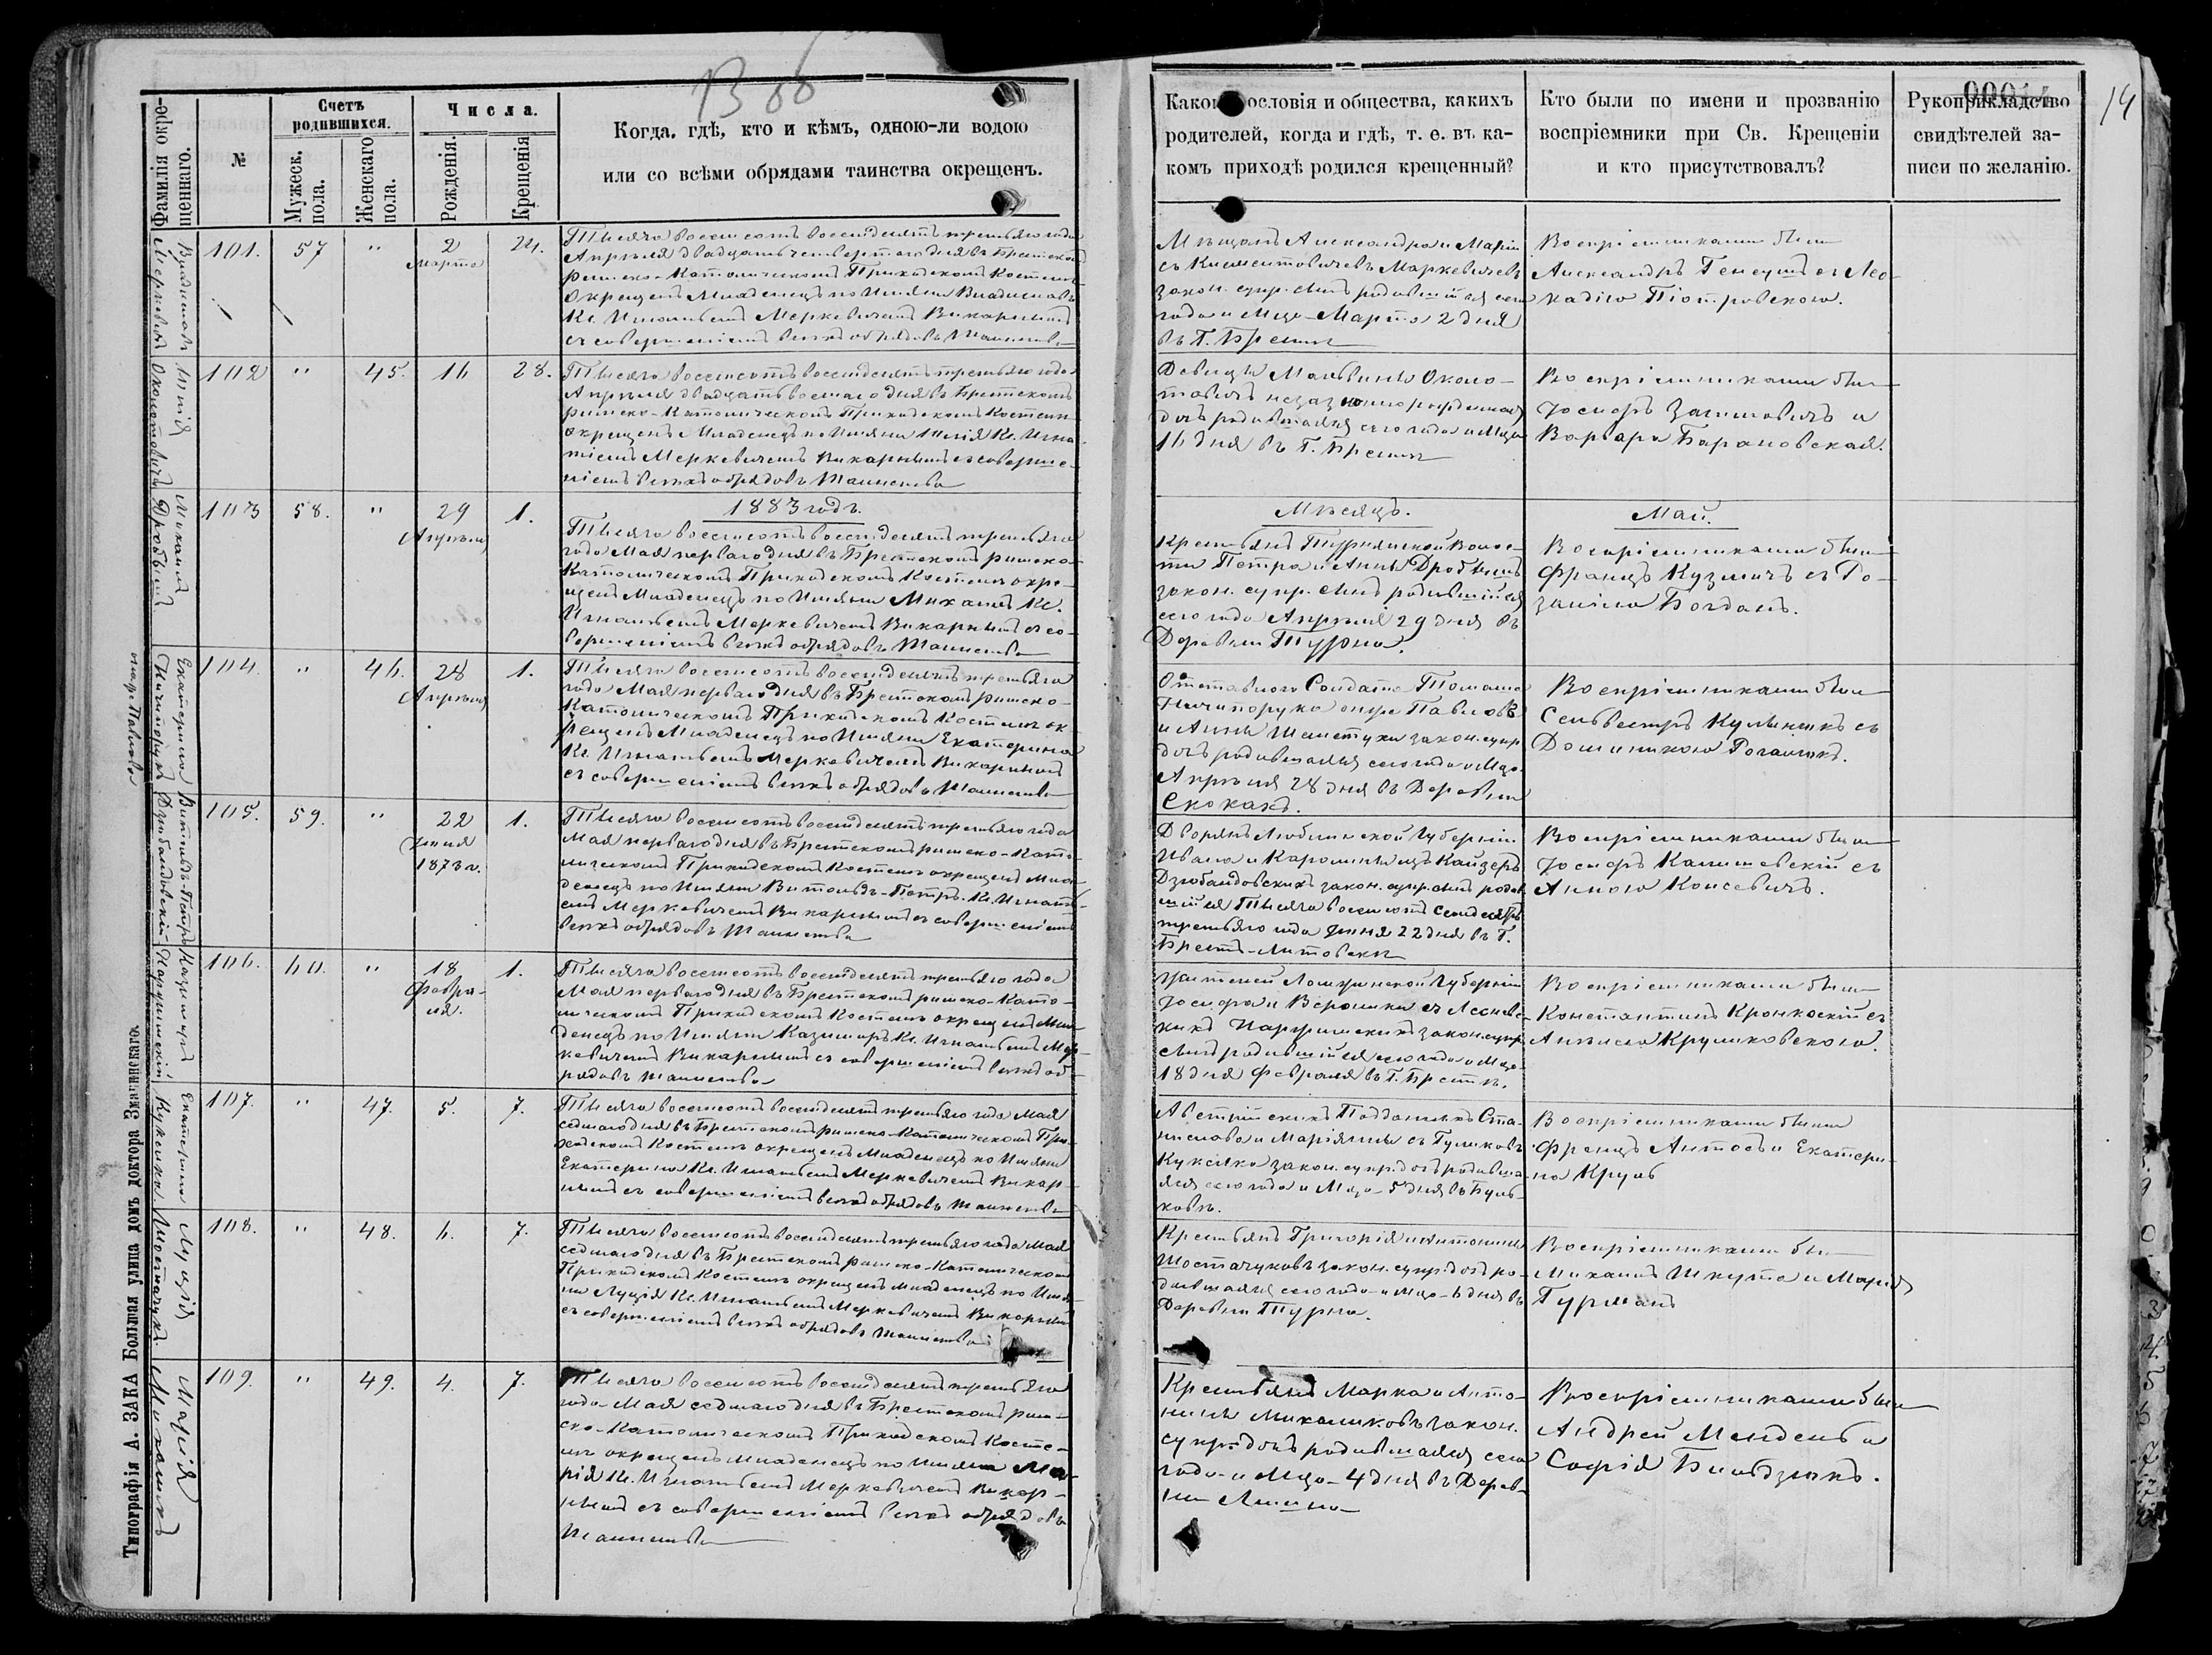 В 66
00014
14
Фамилія окре-
щеннаго.
№
Счетъ
родившихся.
Мужеск.
пола.
Женскаго
пола.
Числа.
Рожденія.
Крещенія
Когда, гдѣ, кто и кѣмъ, одною-ли водою
или со всѣми обрядами таинства окрещенъ.
Какого сословія и общества, какихъ
родителей, когда и гдѣ, т. е. въ ка-
комъ приходѣ родился крещенный?
Кто были по имени и прозванію
воспріемники при Св. Крещеніи
и кто присутствовалъ?
Рукоприкладство
свидѣтелей за-
писи по желанію.
Владиславъ
101.
57
"
2
Марта
24.
Тысяча восемсотъ восемдесятъ третьяго года
Апрѣля двадцать четвертаго дня въ Брестскомъ
римско-Католическомъ Приходскомъ Костелѣ
Окрещенъ Младенецъ по Имяни Владиславъ
Кс. Игнатьемъ Меркевичемъ Викарнымъ
съ совершеніемъ всѣхъ обрядовъ Таинства
Мѣщанъ Александра и Маріи
съ Климентовичевъ Маркевичевъ
закон. супр. сынъ родившійся сего
года и Мца Марта 2 дня
въ Г. Брестѣ
Воспріемниками были
Александръ съ Лео-
кадіею Піотровскою.
Юлія
Околотовичъ
102
"
45.
16
28.
Тысяча восемсотъ восемдесятъ третьяго года
Апрѣля двадцать восмаго дня въ Брестскомъ
римско-Католическомъ Приходскомъ Костелѣ
окрещенъ Младенецъ по Имяни Юлія Кс. Игна-
тіемъ Меркевичемъ Викарнымъ съ соверше-
ніемъ всѣхъ обрядовъ Таинства
Девицы Мальвины Около-
товичъ незаконнорожденная
дочь родившаяся сего года и Мца
16 дня въ Г. Брестѣ
Воспріемниками были
Іосифъ и
Варвара Барановская.
Михаилъ
103
58.
"
29
Апрѣля
1.
1883 годъ.
Мѣсяцъ.
Май.
Тысяча восемсотъ восемдесятъ третьяго
года Мая перваго дня въ Брестскомъ римско-
Католическомъ Приходскомъ Костелѣ окре-
щенъ Младенецъ по Имяни Михаилъ Кс.
Игнатьемъ Меркевичемъ Викарнымъ съ со-
вершеніемъ всѣхъ обрядовъ Таинства
Крестьянъ Турнянской Волос-
ти Петра и Анны
закон. супр. сынъ родившійся
сего года Апрѣля 29 дня въ
Деревни Турна.
Воспріемниками были
Францъ Кузмичъ съ Ро-
заліею Богданъ.
Екатерина
Ничипорукъ
она же Павлова
104.
"
46.
28
Апрѣля
1.
Тысяча восемсотъ восемдесятъ третьяго
года Мая перваго дня въ Брестскомъ римско-
Католическомъ Приходскомъ Костелѣ ок-
рещенъ Младенецъ по Имяни Екатерина
Кс. Игнатьемъ Меркевичемъ Викарнымъ
съ совершеніемъ всѣхъ обрядовъ Таинства
Отставного Солдата Томаша
Ничипорука онже Павловъ
и Анны закон. супр.
дочь родившаяся сего года и Мца
Апрѣля 28 дня въ Деревни
Скокахъ.
Воспріемниками были
Сильвестръ съ
Доминикою
Витольдъ-Петръ
105.
59.
"
22
Іюня
1873 г.
1.
Тысяча восемсотъ восемдесятъ третьяго года
Мая перваго дня въ Брестскомъ римско-Като-
лическомъ Приходскомъ Костелѣ окрещенъ Мла-
денецъ по Имяни Витольдъ-Петръ Кс. Игнать-
емъ Меркевичемъ Викарнымъ съ совершеніемъ
всѣхъ обрядовъ Таинства
Дворянъ Люблинской Губерніи
Ивана и Каролины изъ
закон. супр. сынъ родив-
шійся Тысяча восемсотъ семдесятъ
третьяго года Іюня 22 дня въ Г.
Брестъ-Литовскѣ
Воспріемниками были
Іосифъ Калишевскій съ
Анною
Казимиръ
106.
60.
"
18
Февра-
ля.
1.
Тысяча восемсотъ восемдесятъ третьяго года
Мая перваго дня въ Брестскомъ римско-Като-
лическомъ Приходскомъ Костелѣ окрещенъ Мла-
денецъ по Имяни Казимиръ Кс. Игнатьемъ Мер-
кевичемъ Викарнымъ съ совершеніемъ всѣхъ об-
рядовъ Таинства
Жителей Ломжинской Губерніи
Іосифа и Вероники съ
закон. супр.
сынъ родившійся сего года и Мца
18 дня Февраля въ Г. Брестѣ.
Воспріемниками были
Константинъ съ
Крушковскою.
Екатерина
107.
"
47.
5.
7.
Тысяча восемсотъ восемдесятъ третьяго года Мая
седмаго дня въ Брестскомъ римско-Католическомъ При-
ходскомъ Костелѣ окрещенъ Младенецъ по Имяни
Екатерина Кс. Игнатьемъ Меркевичемъ Викар-
нымъ съ совершеніемъ всѣхъ обрядовъ Таинства
Австрійскихъ Подданныхъ Ста-
нислава и Маріянны съ
закон. супр. дочь родивша-
яся сего года и Мца 5 дня въ Буль-
ковѣ.
Воспріемниками были
Францъ и Екатери-
на Круль
Луція
108.
"
48.
6.
7.
Тысяча восемсотъ восемдесятъ третьяго года Мая
седмаго дня въ Брестскомъ римско-Католическомъ
Приходскомъ Костелѣ окрещенъ Младенецъ по Имя-
ни Луція Кс. Игнатьемъ Меркевичемъ Викарнымъ
съ совершеніемъ всѣхъ обрядовъ Таинства
Крестьянъ Григорія и Антонины
Шостачуковъ закон. супр. дочь ро-
дившаяся сего года и Мца 6 дня въ
Деревни Турна.
Воспріемниками были
Михаилъ Шкута и Марія
Гурманъ
Марія
Михалюкъ
109.
"
49.
4.
7.
Тысяча восемсотъ восемдесятъ третьяго
года Мая седмаго дня въ Брестскомъ рим-
ско-Католическомъ Приходскомъ Косте-
лѣ окрещенъ Младенецъ по Имяни Ма-
рія Кс. Игнатьемъ Меркевичемъ Викар-
нымъ съ совершеніемъ всѣхъ обрядовъ
Таинства
Крестьянъ Марка и Анто-
нины Михалюковъ закон.
супр. дочь родившаяся сего
года и Мца 4 дня въ Дерев-
ни
Воспріемниками были
Андрей и
Софія
Типографія А. ЗАКА Большая улица домъ доктора Знаминскаго.